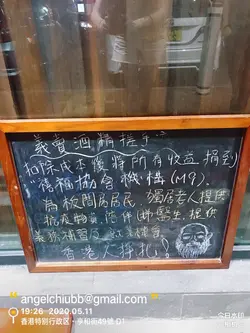 義賣酒精搓手
扣除成本後將所有收益 捐到
"禧福協會機構(M9)
為板間房居民、獨居老人提供
抗疫物資、陪伴
義務
香港人掙扎!
angelchiubb@gmail.com
19:26 2020.05.11
香港特别行政区·享和街49號 D1
今日水印